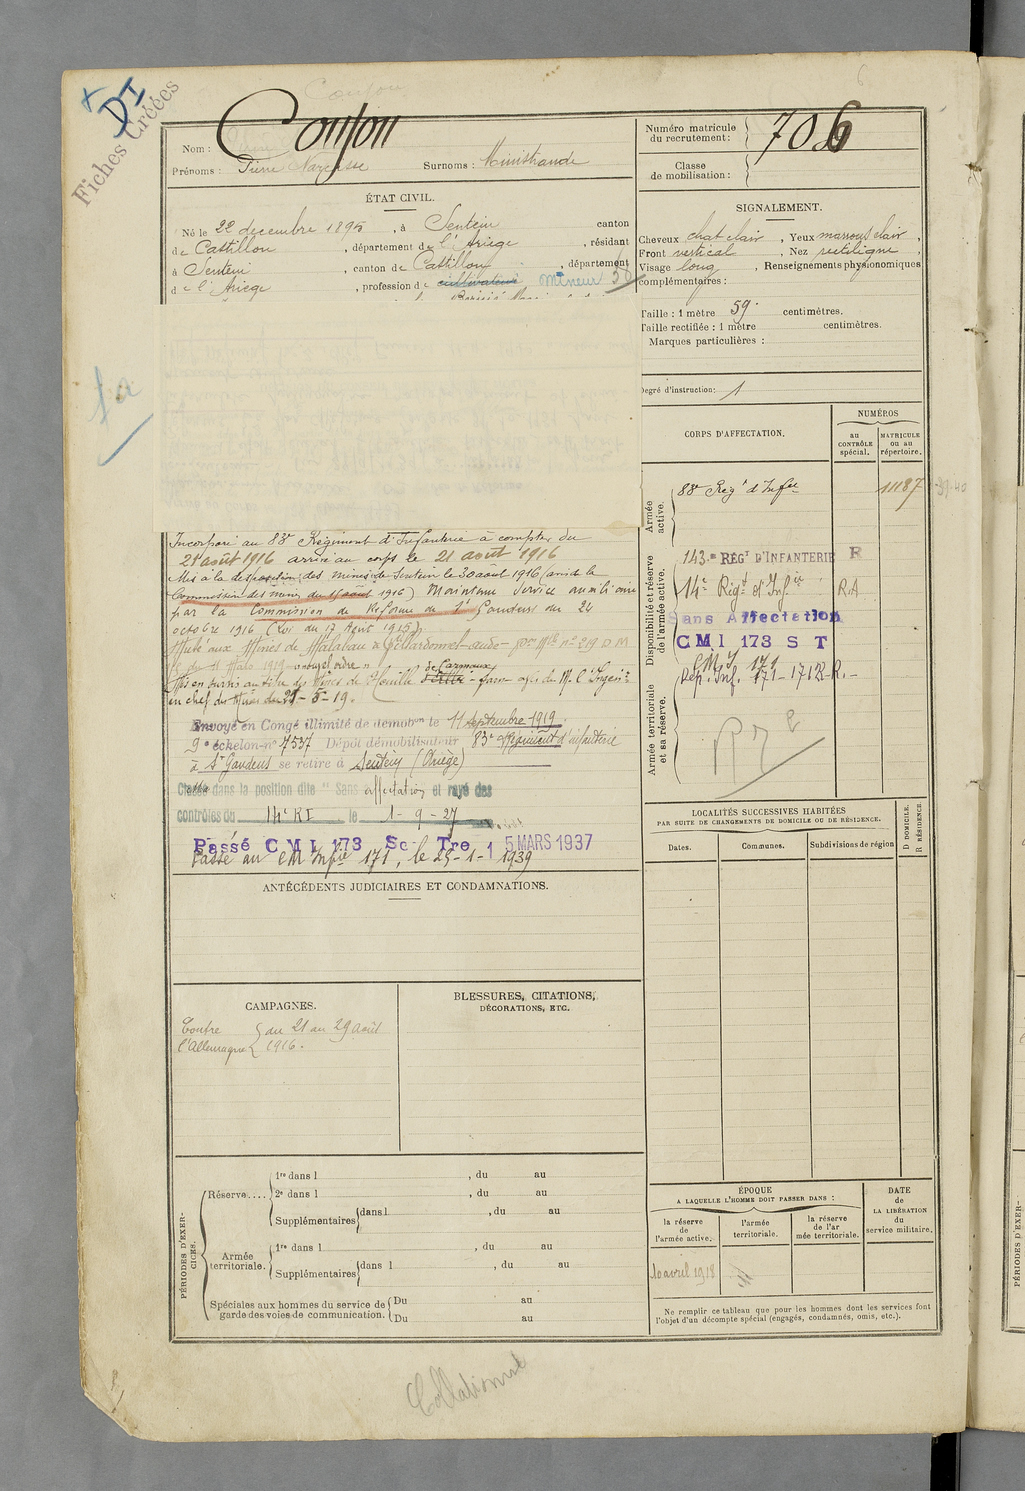 Fiches Créées
DI
Nom : Coujou
Prénoms : Pierre Narcisse Surnoms : Ministrande
Numéro matricule du recrutement : 706
Classe de mobilisation :
ÉTAT CIVIL.
Né le 22 decembre 1895, à Sentein canton
de Castillon, département de l'Ariège, résidant
à Sentein, canton de Castillon, département
d e l'Ariège, profession de cultivateur mineur
SIGNALEMENT.
Cheveux chat clair, Yeux marrons clair,
Front vertical, Nez rectiligne,
Visage long, Renseignements physionomiques
complémentaires :
Taille : 1 mètre 59 centimètres.
Taille rectifiée : 1 mètre centimètres.
Marques particulières :
Degré d'instruction: 1
CORPS D'AFFECTATION.
NUMÉROS
au CONTRÔLE spécial.
MATRICULE ou au répertoire.
Armée active.
83e Régt d'Infie 11187
Disponibilité et réserve de l'armée active.
143.e RÉGT D'INFANTERIE R
14e Régt d'Infie R.A
Sans Affectation
CMI 173 S T
Armée territoriale et sa réserve.
Incorporé au 83e Régiment d'Infanterie à compter du
21 août 1916 arrivé au corps le 21 août 1916
Mis à la disposition des mines de Sentein le 30 août 1916 (avis de la
Commission des mines du 15 août 1916) Maintenu Service auxiliaire
par la Commission de Réforme de St Gaudens du 24
octobre 1916 (Loi du 17 Août 1915).
Muté aux Mines de Malabau à Villardonnel-aude - no 219 D M
du 11 Mars 1919
Mis en sursis au titre des Mines de Houille de Carmaux
en chef des Mines du 21-5-19.
Envoyé en Congé illimité de démobon le 11 septembre 1919.
9e échelon no 7537 Dépôt démobilisateur 83e Régiment d'infanterie
à St Gaudens se retire à Sentein (Ariège)
Classé dans la position dite "Sans affectation et rayé des
contrôles du 14e RI le 1-9-27
Passé CMI 173 Se Tre, 15 MARS 1937
Passé au CM Infie 171, le 25-1-1939
ANTÉCÉDENTS JUDICIAIRES ET CONDAMNATIONS.
LOCALITÉS SUCCESSIVES HABITÉES
PAR SUITE DE CHANGEMENTS DE DOMICILE OU DE RÉSIDENCE.
Dates.
Communes.
Subdivisions de région
D DOMICILE.
R RÉSIDENCE.
CAMPAGNES.
Contre l'Allemagne du 21 au 29 août
1916.
BLESSURES, CITATIONS,
DÉCORATIONS, ETC.
PÉRIODES D'EXERCICES.
Réserve....
1re dans l , du au
2e dans l , du au
Supplémentaires dans l , du au
Armée territoriale.
1re dans l , du au
Supplémentaires dans l , du au
Spéciales aux hommes du service de
garde des voies de communication.
Du au
Du au
ÉPOQUE
A LAQUELLE L'HOMME DOIT PASSER DANS :
la réserve de l'armée active.
l'armée territoriale.
la réserve de l'ar mée territoriale.
DATE de LA LIBÉRATION du service militaire.
10 avril 1918
Ne remplir ce tableau que pour les hommes dont les services font
l'objet d'un décompte spécial (engagés, condamnés, omis, etc.).
Collationné
PÉRIODES D'EXER-